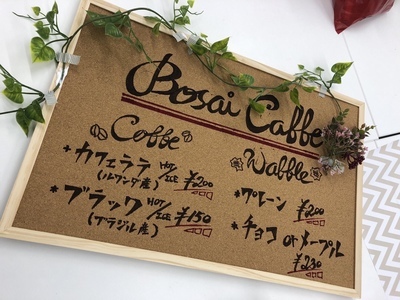 Bosai Caffe
Coffe
カフェラテ HOT/ICE ¥200
(ルワンダ産)
ブラック HOT/ICE ¥150
(ブラジル産)
Wabble
プレーン ¥200
チョコ or メープル
¥230